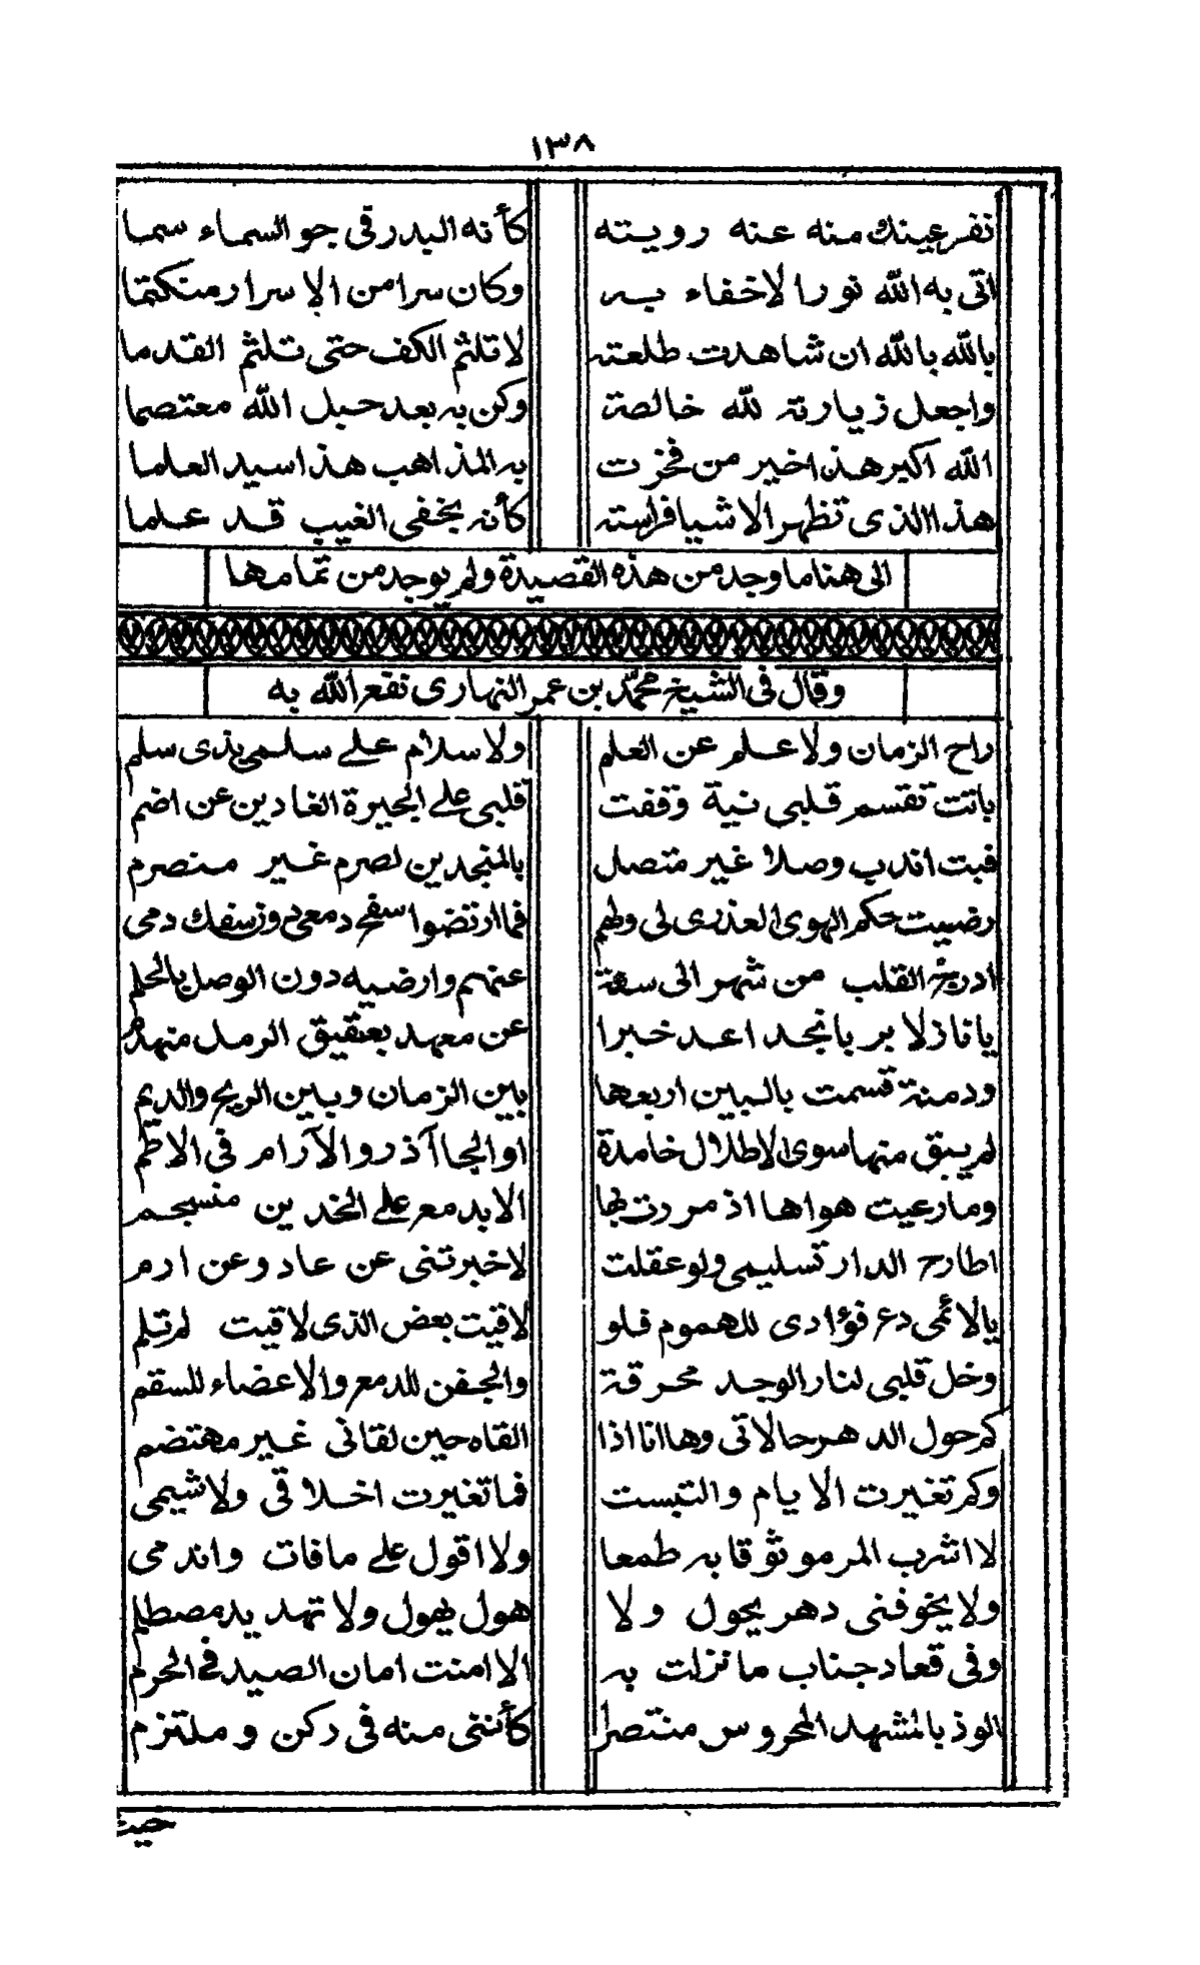 ١٣٨
نقر عينك منه عنه رويته كأنه البدر في جو السماء سما
اتى به الله نورا لاخفاء به وكان سرا من الاسرار منكتما
بالله بالله ان شاهدت طلعته لا تلثم الكف حتى تلثم القدما
واجعل زيارته لله خالصة وكن به بعد حبل الله معتصما
الله اكبر هذا خير من فخرت به المذاهب هذا سيد العلما
هذا الذى تظهر الاشيا فراسته كأنه بخفى الغيب قد علما
الى هنا ما وجد من هذه القصيدة ولم يوجد من تمامها
وقال فى الشيخ محمد بن عمر النهارى نفع الله به
راح الزمان ولا علم عن العلم ولا سلام على سلمى بذى سلم
باتت تقسم قلبى نية وقفت قلبى على الجيرة الغادين عن اضم
فبت اندب وصلا غير متصل بالمنجدين لصرم غير منصرم
رضيت حكم الهوى العذرى لى ولهم فما ارتضوا سفح دمعى دون سفك دمى
ادرج القلب من شهر الى سعة عنهم وارضيه دون الوصل بالحلم
يا نازلا بربا نجد اعد خبرا عن معهد بعقيق الرمل منهدم
ودمنة قسمت بالبين اربعها بين الزمان وبين الريح والديم
لم يبق منها سوى الاطلال خامدة او الجاآذر والآرام فى الاطم
وما رعيت هواها اذ مررت بها الا بدمع على الخدين منسجم
اطارح الدار تسليمى ولو عقلت لاخبرتنى عن عاد وعن ارم
يالائمى دع فؤادى للهموم فلو لاقيت بعض الذى لاقيت لم تلم
وخل قلبى لنار الوجد محرقة والجفن للدمع والاعضاء للسقم
كم حول الدهر حالاتى وها انا اذا القاه حين لقانى غير مهتضم
وكم تغيرت الايام والتبست فما تغيرت اخلاقى ولا شيمى
لا اشرب المر موثوقا به طمعا ولا اقول على ما فات واندمى
ولا يخوفنى دهر يحول ولا هول يهول ولا تهديد مصطلم
وفى قعاد جناب ما نزلت به الا امنت امان الصيد فى الحرم
الوذ بالمشهد المحروس منتصرا كأننى منه فى ركن وملتزم
حيث